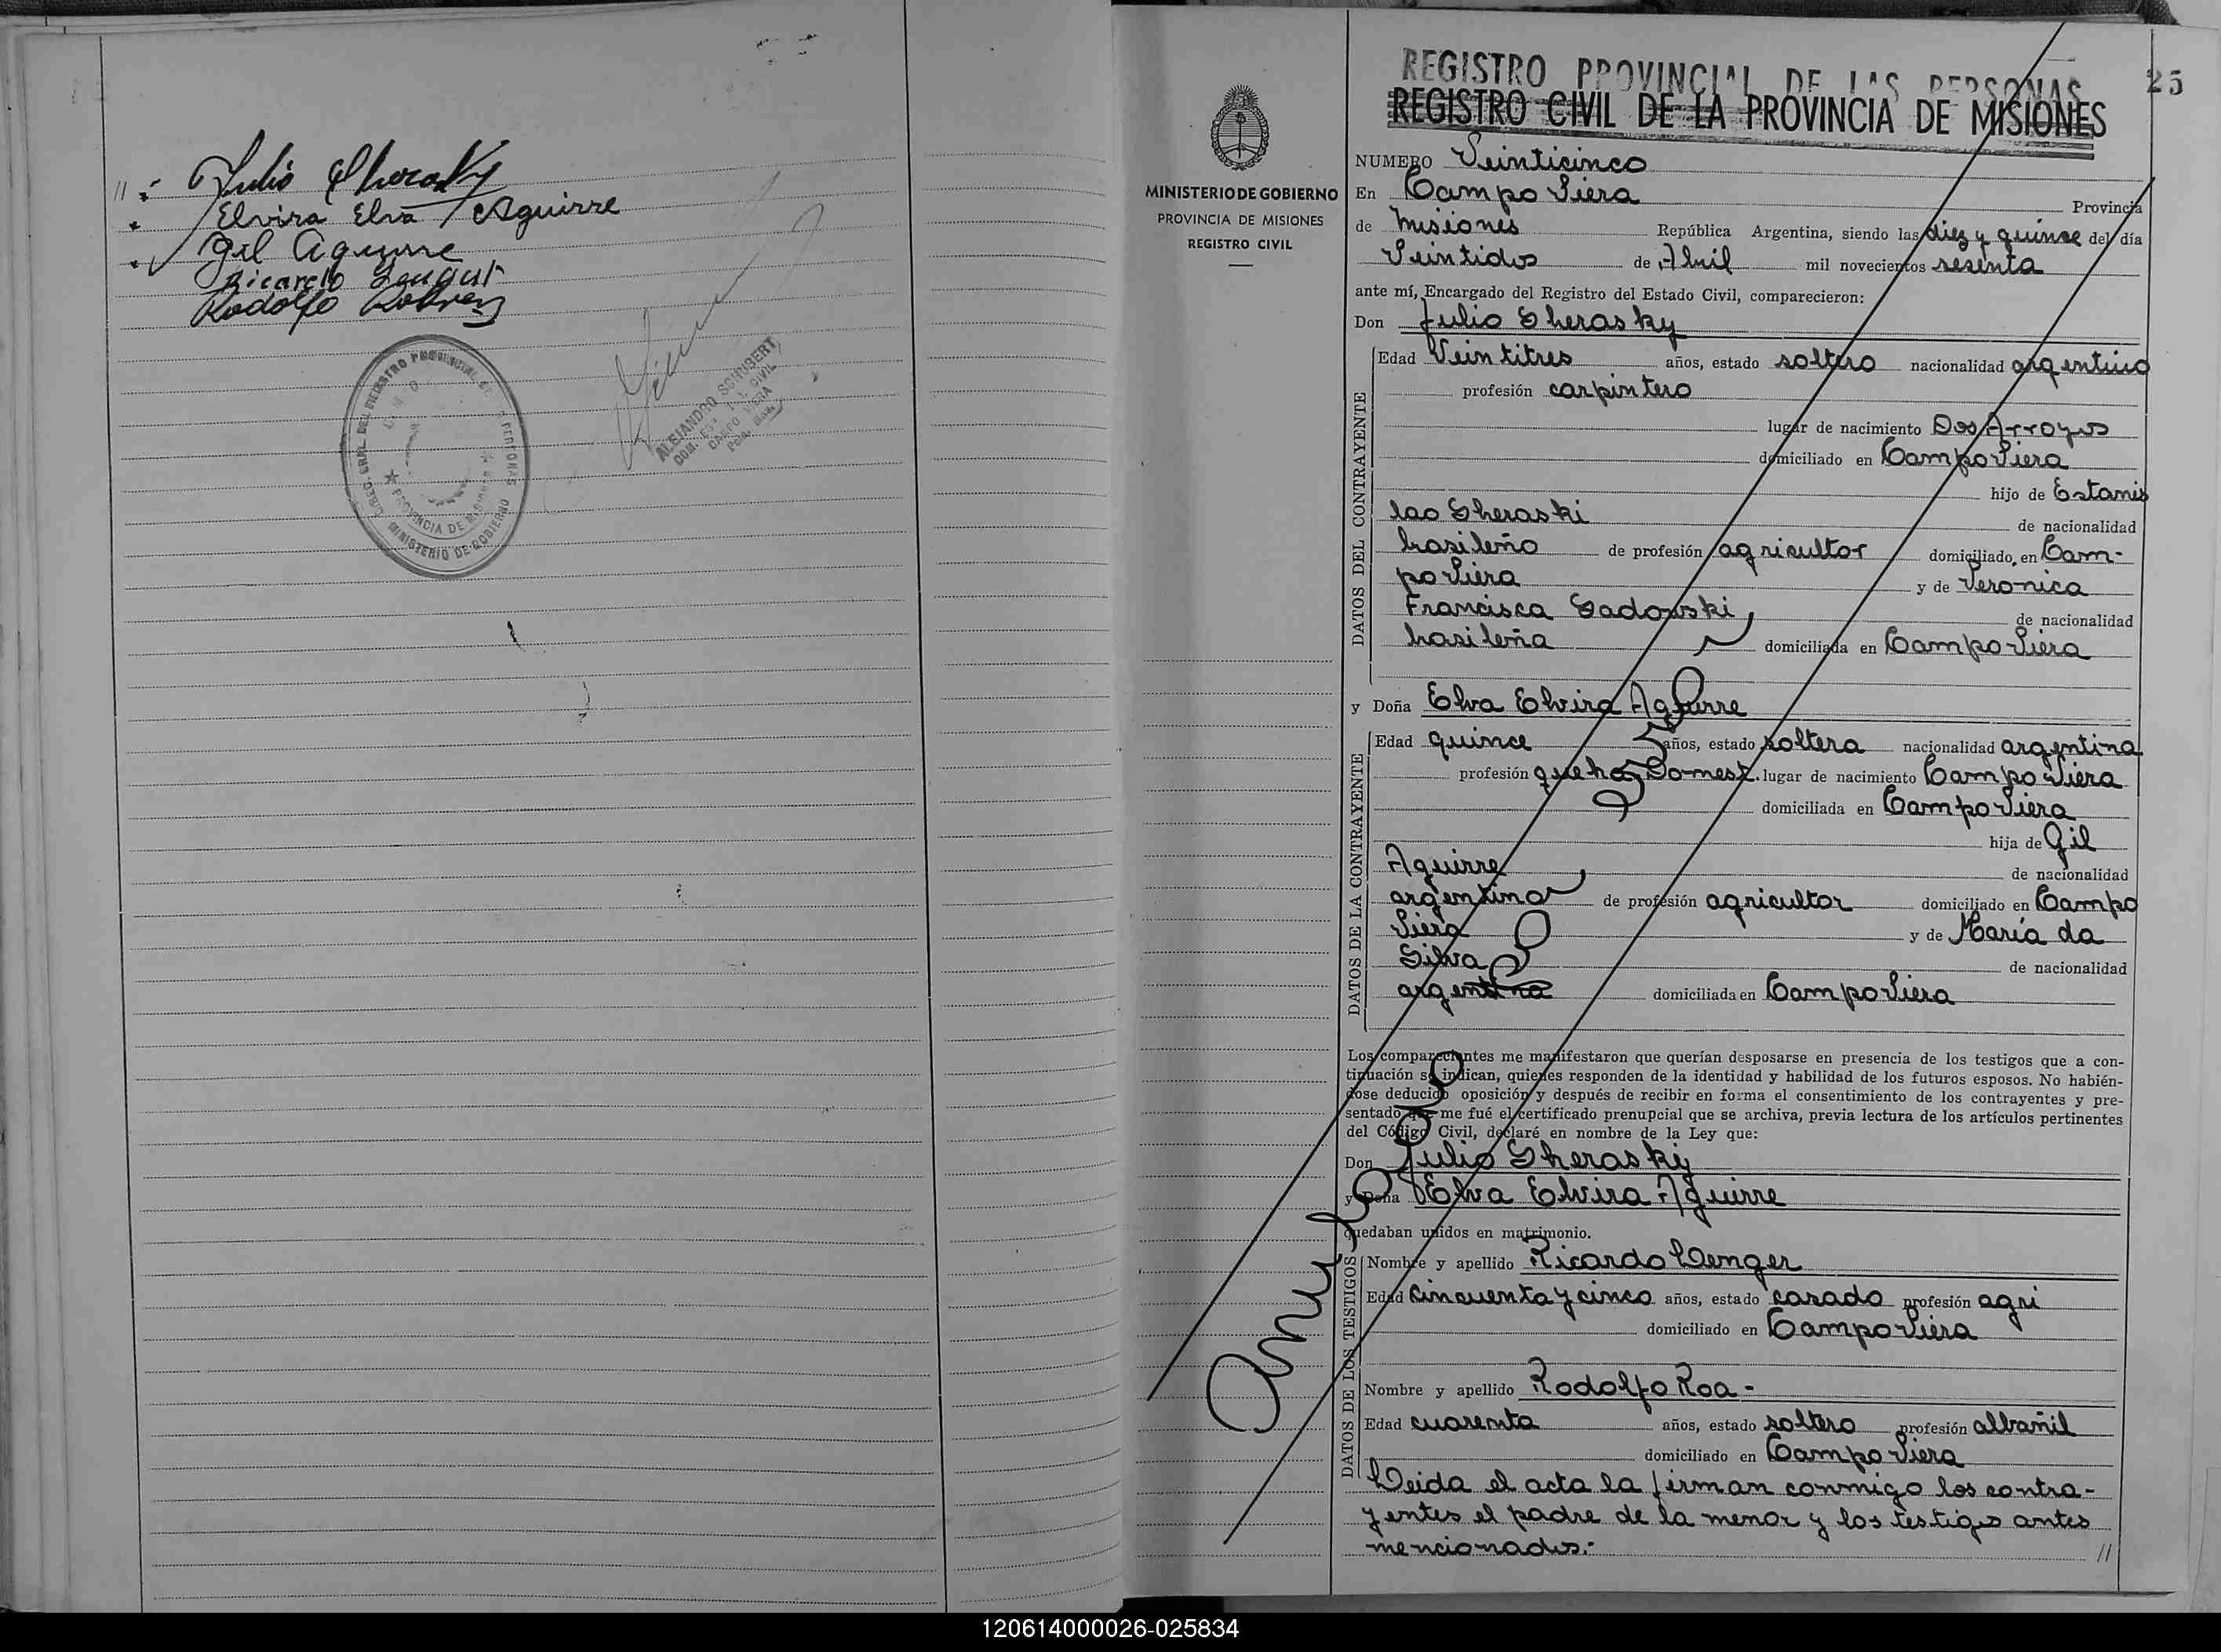 // - Julio Sherasky
Elvira Elva Aguirre
Gil Aguirre
Ricardo
Rodolfo
MINISTERIO DE GOBIERNO
PROVINCIA DE MISIONES
ALEJANDRO SCHUBERT
CAMPO VIERA
REGISTRO PROVINCIAL DE LAS PERSONAS
25
REGISTRO CIVIL DE LA PROVINCIA DE MISIONES
MINISTERIO DE GOBIERNO
PROVINCIA DE MISIONES
REGISTRO CIVIL
NUMERO Veinticinco
En Campo Viera Provincia
de Misiones República Argentina, siendo las diez y quince del día
Veintidos de Abril mil novecientos sesenta
ante mí, Encargado del Registro del Estado Civil, comparecieron:
Don Julio Sherasky
DATOS DEL CONTRAYENTE
Edad Veintitres años, estado soltero nacionalidad argentino
profesión carpintero
lugar de nacimiento Dos Arroyos
domiciliado en Campo Viera
hijo de Estanis
lao Sheraski
de nacionalidad
brasileño de profesión agricultor domiciliado en Cam-
po Viera y de Veronica
Francisca Sadowski
de nacionalidad
brasileña domiciliada en Campo Viera
y Doña Elva Elvira Aguirre
DATOS DE LA CONTRAYENTE
Edad quince años, estado soltera nacionalidad argentina
profesión queha Domest. lugar de nacimiento Campo Viera
domiciliada en Campo Viera
hija de Gil
Aguirre
de nacionalidad
argentino de profesión agricultor domiciliado en Campo
Viera y de María da
Silva
de nacionalidad
argentina domiciliada en Campo Viera
Los comparecientes me manifestaron que querían desposarse en presencia de los testigos que a con-
tinuación se indican, quienes responden de la identidad y habilidad de los futuros esposos. No habién-
dose deducido oposición y después de recibir en forma el consentimiento de los contrayentes y pre-
sentado que me fué el certificado prenupcial que se archiva, previa lectura de los artículos pertinentes
del Código Civil, declaré en nombre de la Ley que:
Don Julio Sherasky
y Doña Elva Elvira Aguirre
quedaban unidos en matrimonio.
Anulado
DATOS DE LOS TESTIGOS
Nombre y apellido Ricardo Wenger
Edad Cincuenta y cinco años, estado casado profesión agri
domiciliado en Campo Viera
Nombre y apellido Rodolfo Roa -
Edad cuarenta años, estado soltero profesión albañil
domiciliado en Campo Viera
Leida el acta la firman conmigo los contra-
yentes el padre de la menor y los testigos antes
mencionados.- //
120614000026-025834